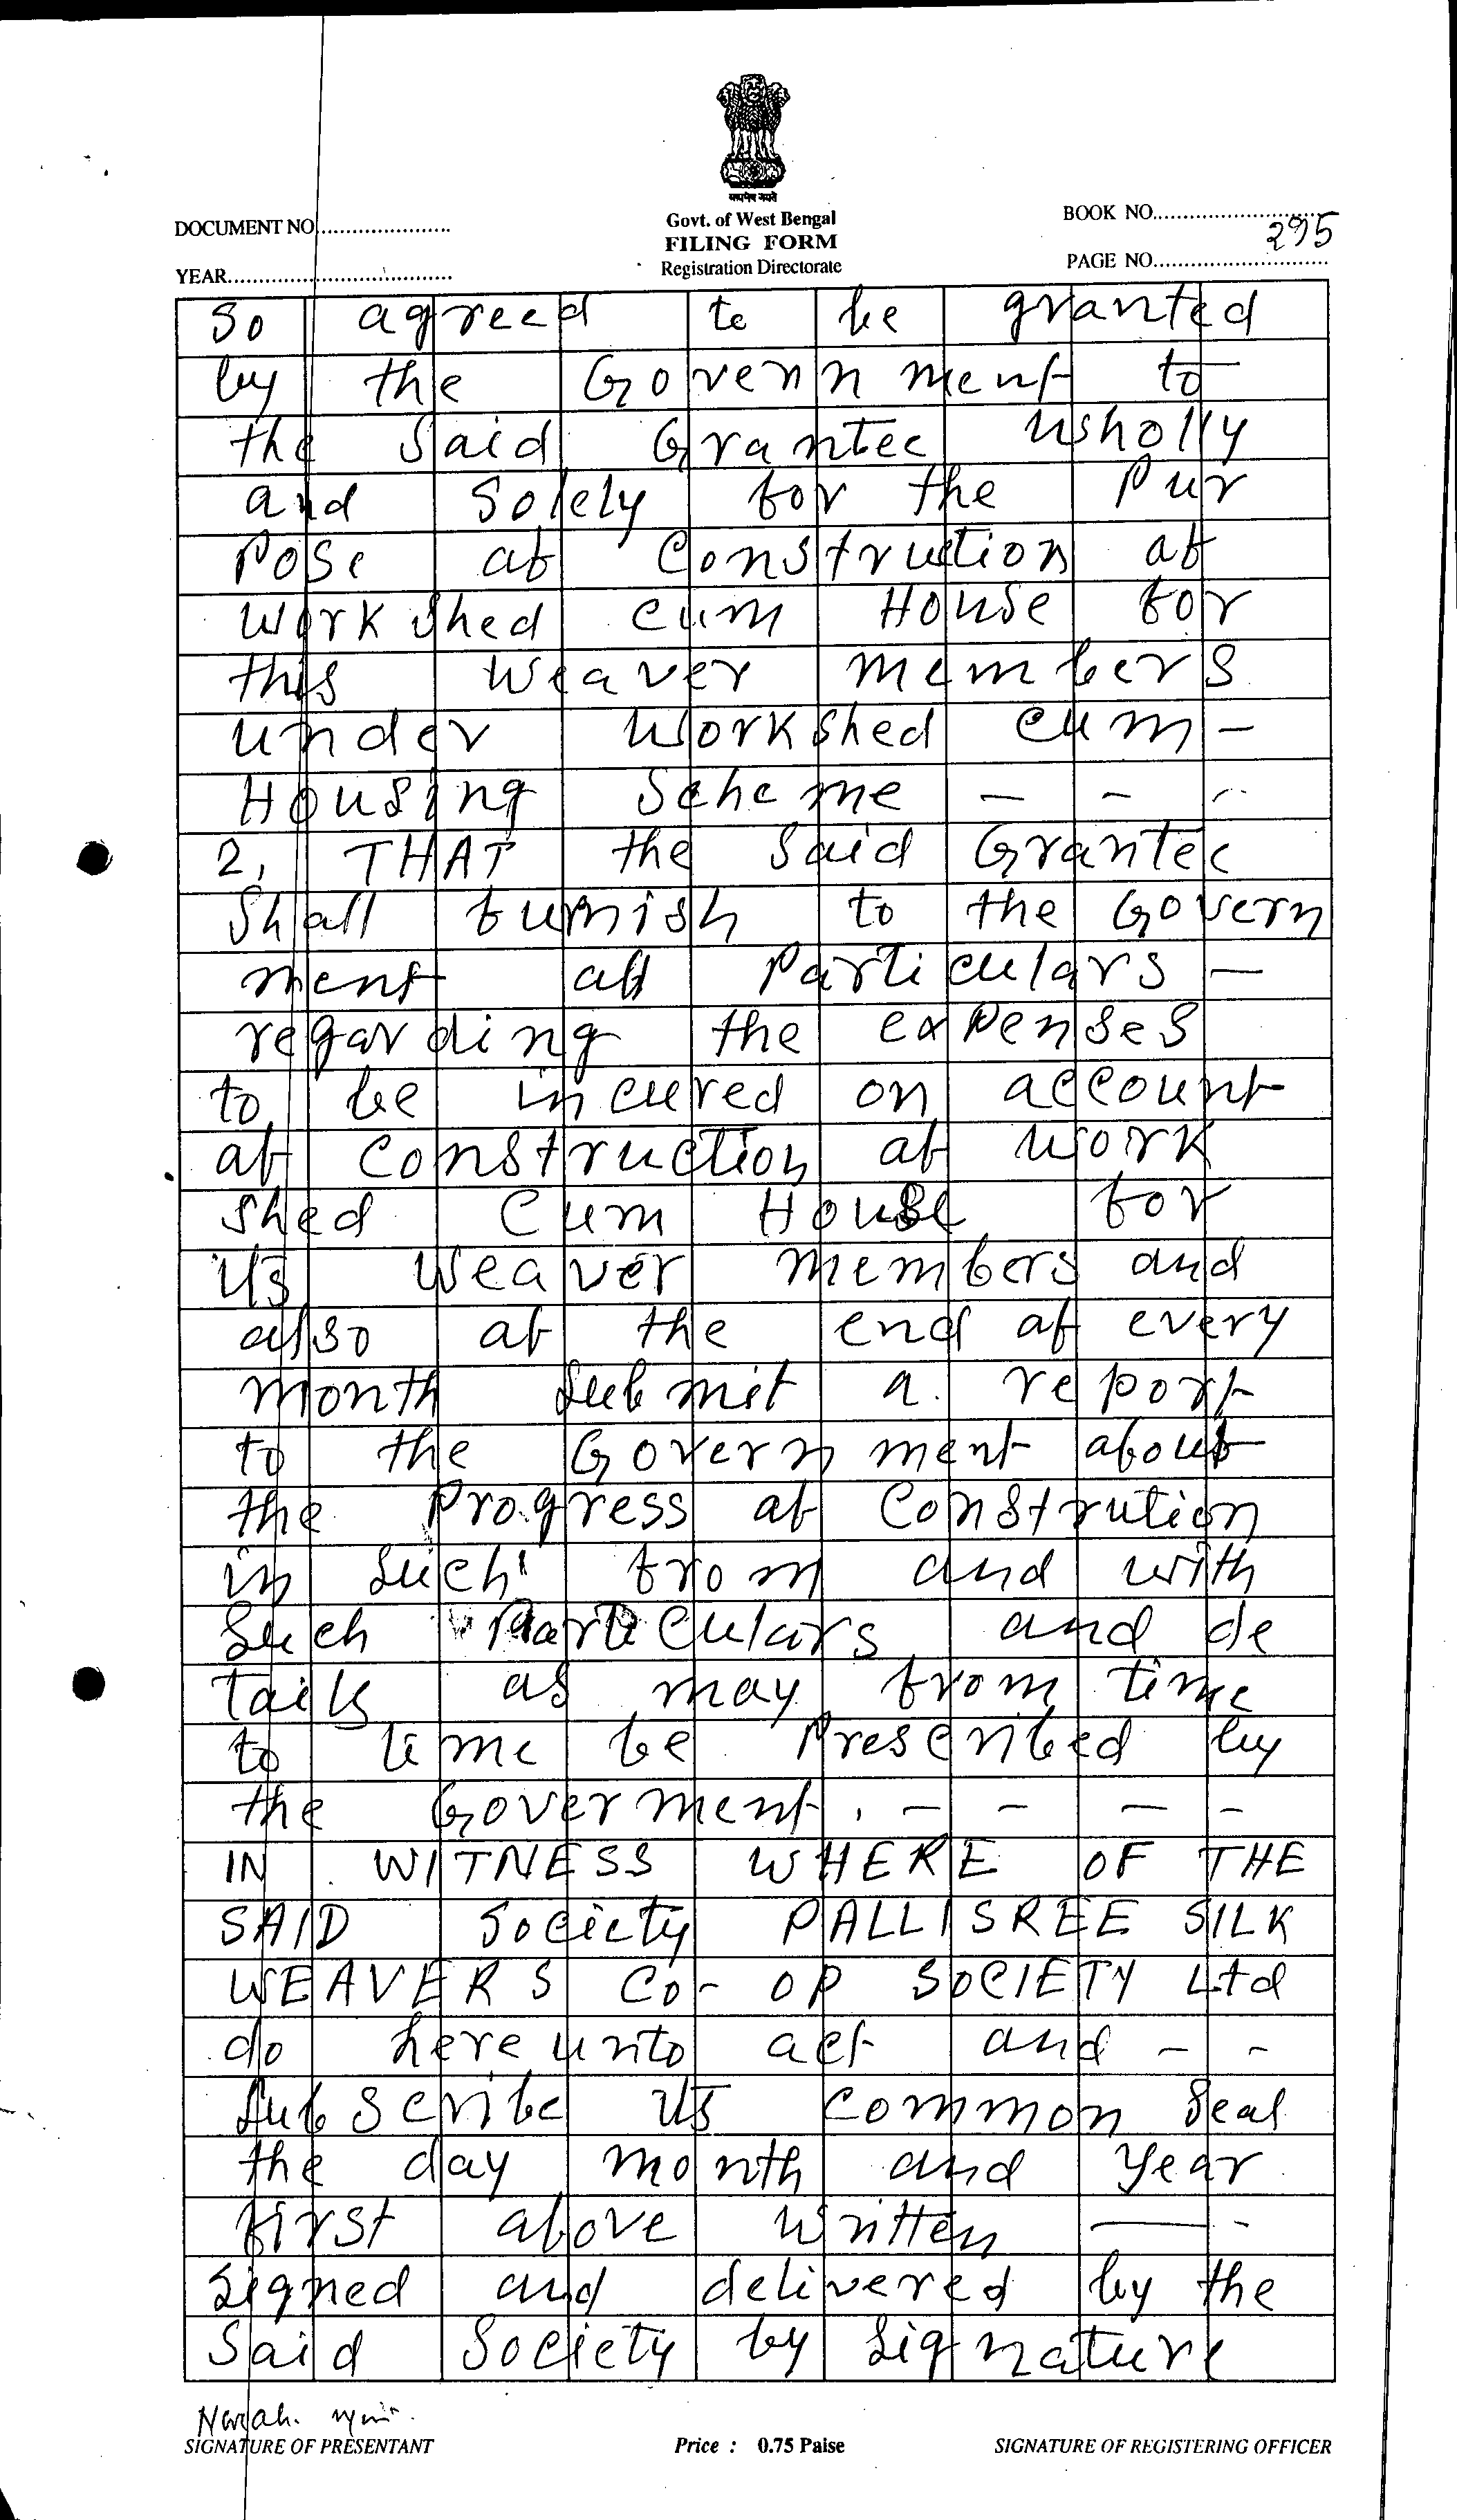 सत्यमेव जयते
Govt. of West Bengal
FILING FORM
Registration Directorate
DOCUMENT NO.....................
BOOK NO.............................
YEAR......................................
PAGE NO............................. 295
So agreed to be granted
by the Governnment to
the Said Grantee wholly
and Solely for the Pur
Pose of Construction of
Work shed Cum House for
this weaver members
under Workshed Cum -
Housing Scheme - - -
2, THAT the Said Grantee
Shall furnish to the Govern
ment all Particulars -
regarding the expenses
to be incured on account
of Construction of work
Shed Cum House for
its weaver members and
also at the end of every
month Submit a report
to the Government about
the Progress of Constrution
in Such from and with
Such Particulars and de
tails as may from time
to time be Prescribed by
the Goverment. - - - -
IN WITNESS WHERE OF THE
SAID Society PALLISREE SILK
WEAVERS CO- OP SOCIETY Ltd
do here unto act and - -
Subscribe its Common Seal
the day month and Year
first above Written - -
Signed and delivered by the
Said Society by Signature
SIGNATURE OF PRESENTANT
Price : 0.75 Paise
SIGNATURE OF REGISTERING OFFICER